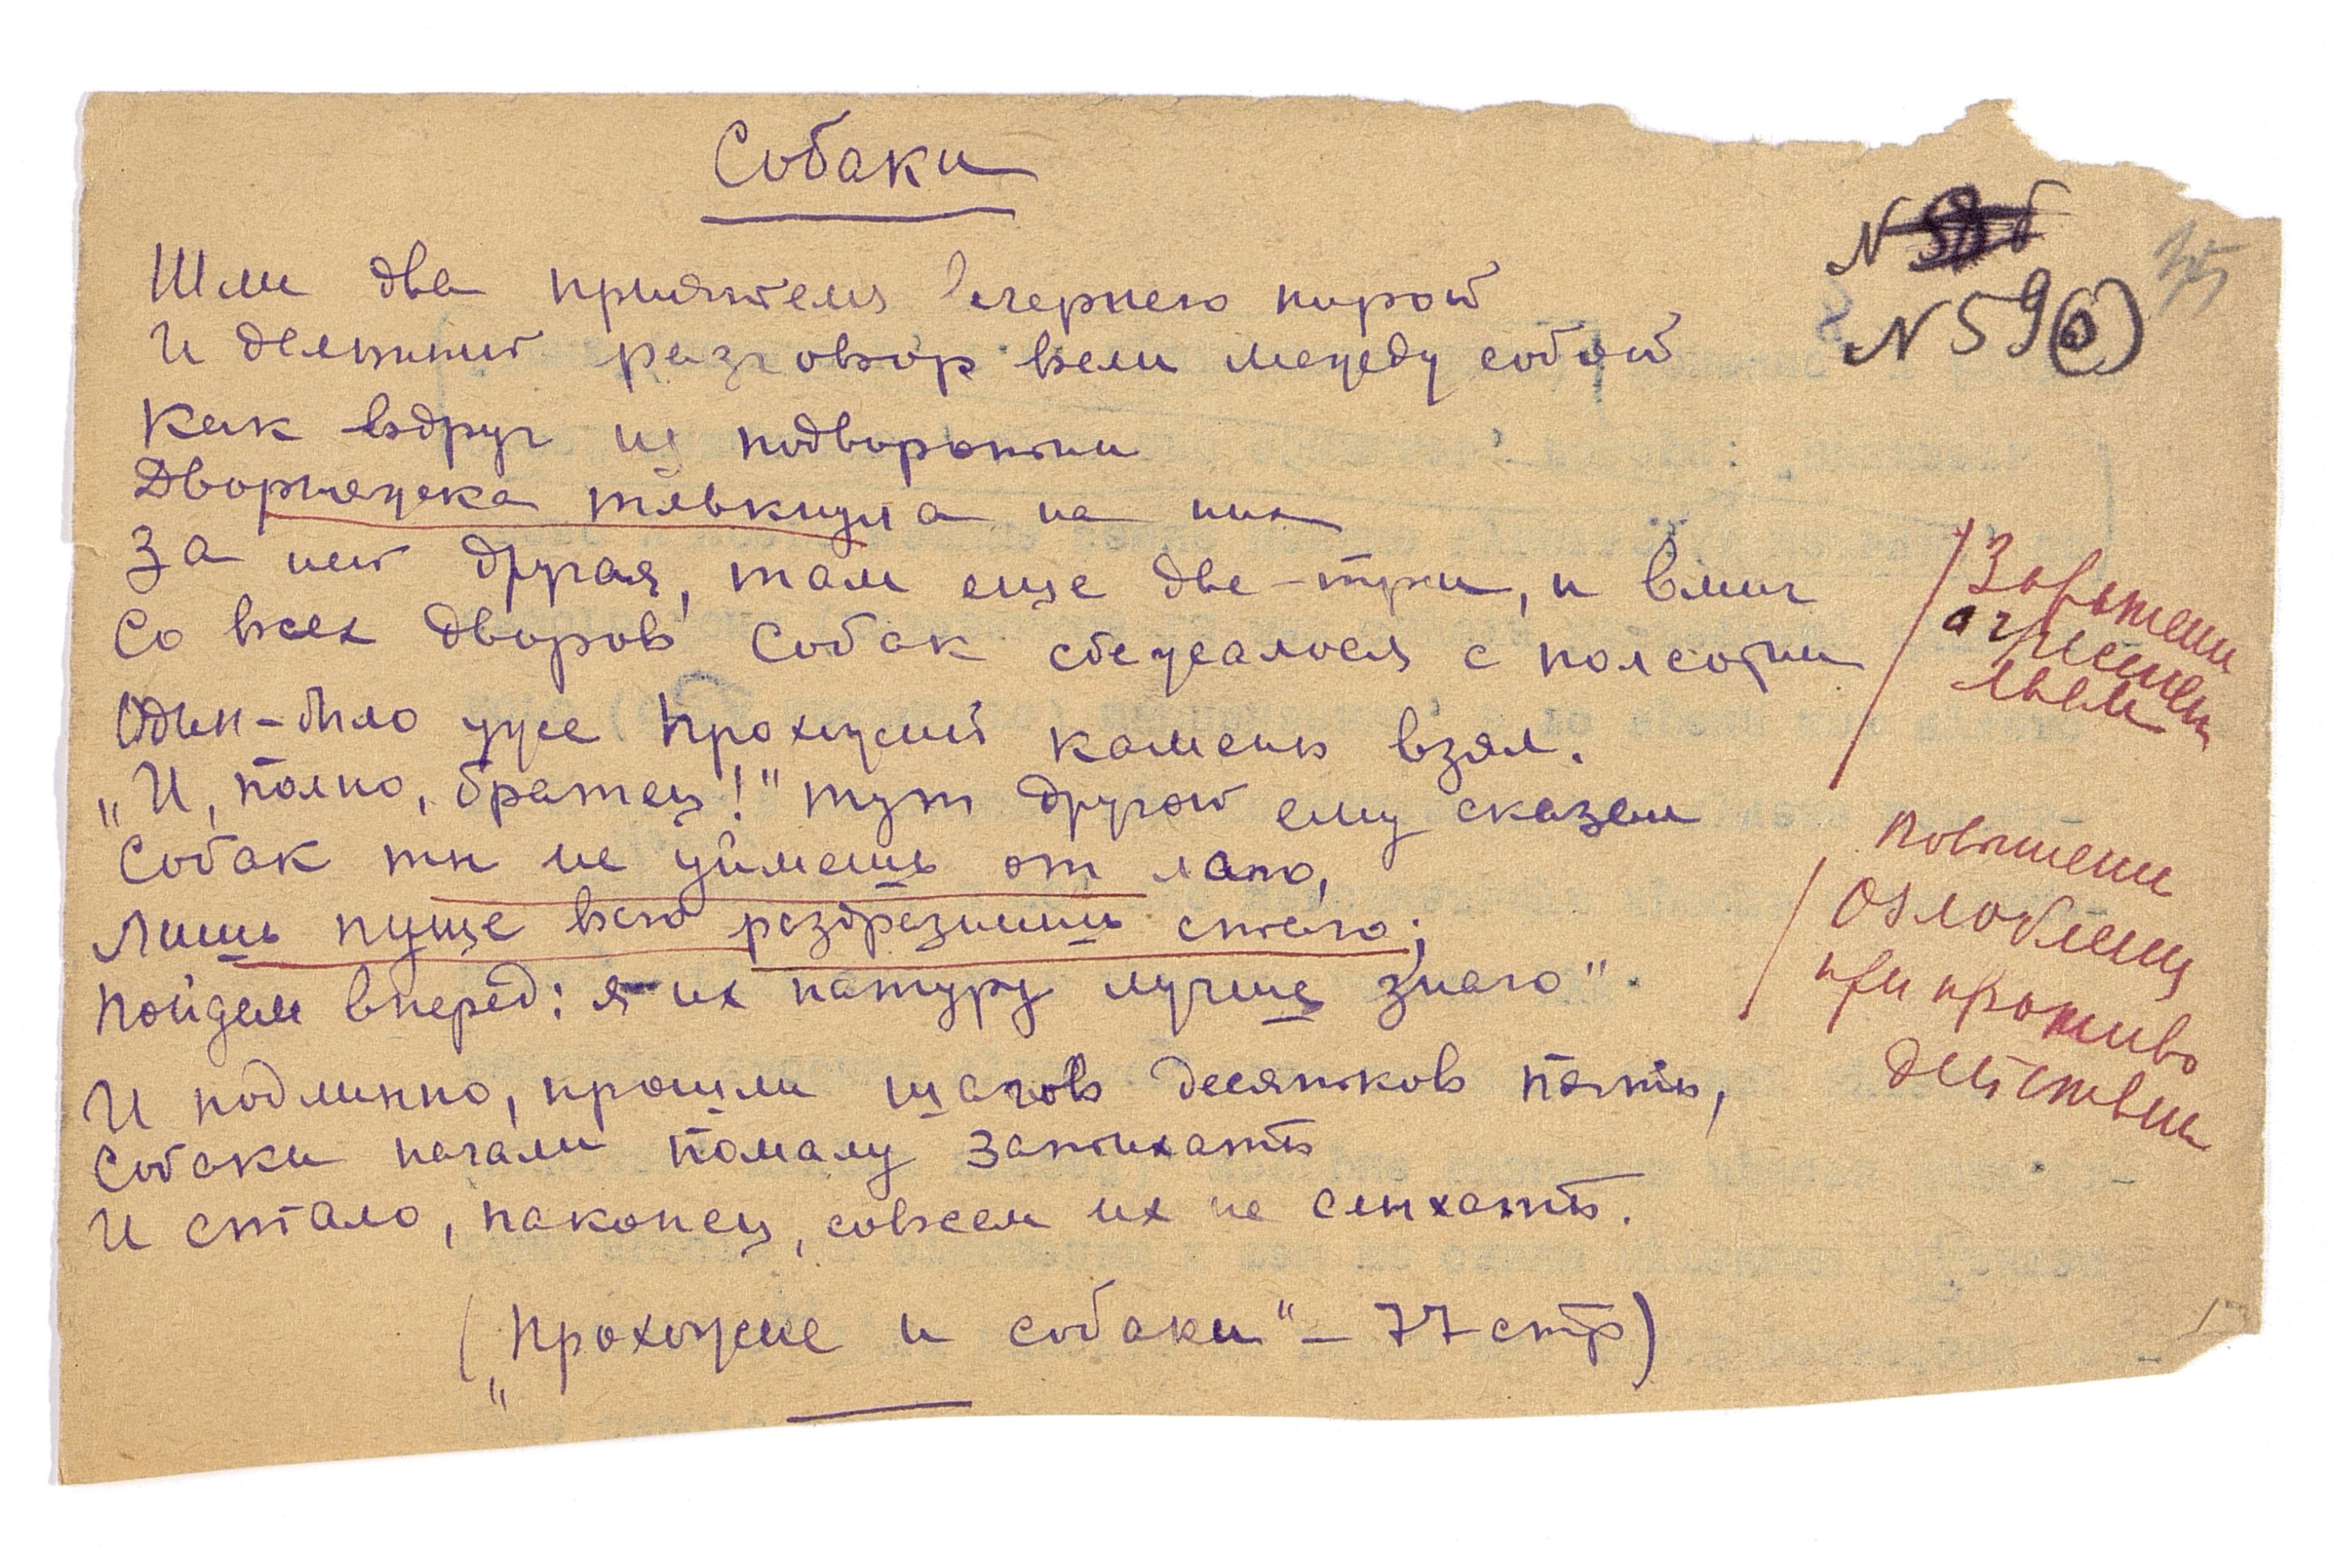 Собаки
N 59 б
Шли два приятеля вечернею порой
И дельный разговор вели между собой
Как вдруг из подворотни
Дворняжка тявкнула на них
За ней другая, там еще две-три, и вмиг
Со всех дворов собак сбежалося с полсотни
Один-было уже прохожий камень взял.
„И, полно, братец!" тут другой ему сказал
Собак ты не уймешь от лаю,
Лишь пуще всю раздразнишь стаю;
Пойдем вперед; я их натуру лучше знаю".
И подлинно, прошли шагов десятков пять,
Собаки начали помалу затихать
И стало, наконец, совсем их не слыхать.
(„Прохожие и собаки" – 77 стр)
повышени
озлобления
при противо
действии